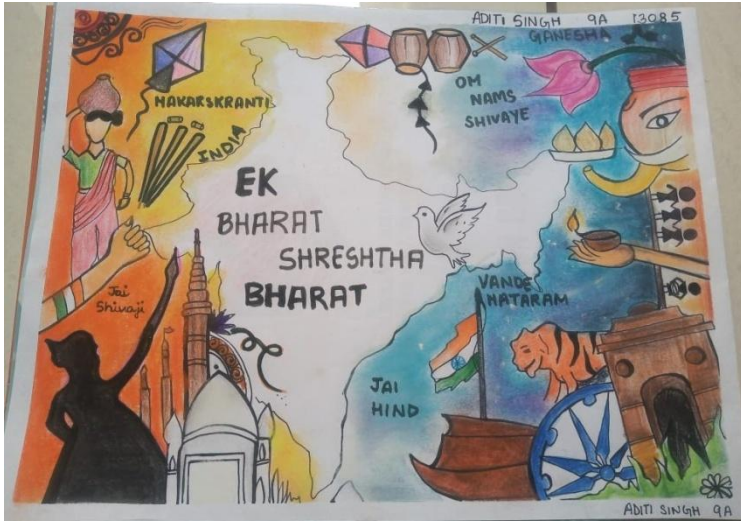 ADITI SINGH 9A 13085
GANESHA
MAKARSKRANTI
INDIA
OM
NAMS
SHIVAYE
EK
BHARAT
SHRESHTHA
BHARAT
Jai
Shivaji
VANDE
MATARAM
JAI
HIND
ADITI SINGH 9A